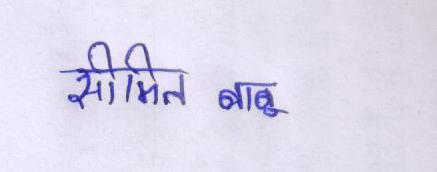 सीमित बाबू